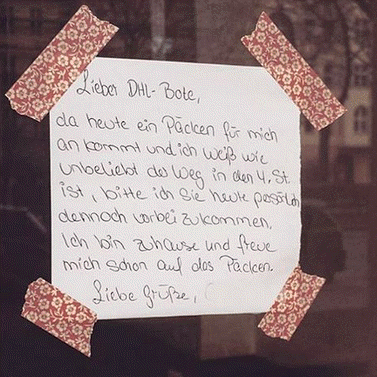 Lieber DHL-Bote,
da heute ein Päcken für mich
an kommt und ich weiß wie
unbeliebt der Weg in den 4. St.
ist, bitte ich Sie heute persölich
dennoch vorbei zukommen,
Ich bin zuhause und freue
mich schon auf das Päcken.
Liebe Grüße,